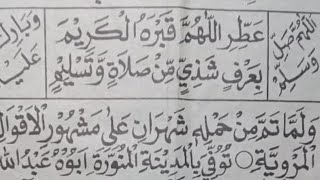 اَللّٰهُمَّ صَلِّ
وَسَلِّمْ
عَطِّرِ اللّٰهُمَّ قَبْرَهُ الْكَرِيْمَ
بِعَرْفٍ شَذِيٍّ مِّنْ صَلَاةٍ وَّتَسْلِيْمٍ
وَبَارِكْ
عَلَيْهِ
وَلَمَّا تَمَّ مِنْ حَمْلِهِ شَهْرَانِ عَلٰى مَشْهُوْرِ الْاَقْوَالِ
الْمَرْوِيَّةِ ○ تُوُفِّيَ بِالْمَدِيْنَةِ الْمُنَوَّرَةِ اَبُوْهُ عَبْدُ اللّٰهِ